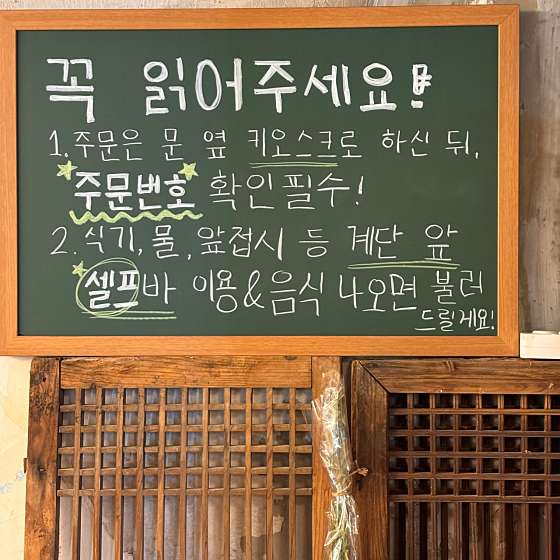 꼭 읽어주세요!
1. 주문은 문 옆 키오스크로 하신 뒤,
주문번호 확인필수!
2. 식기, 물, 앞접시 등 계단 앞
셀프바 이용&음식 나오면 불러
드릴게요!